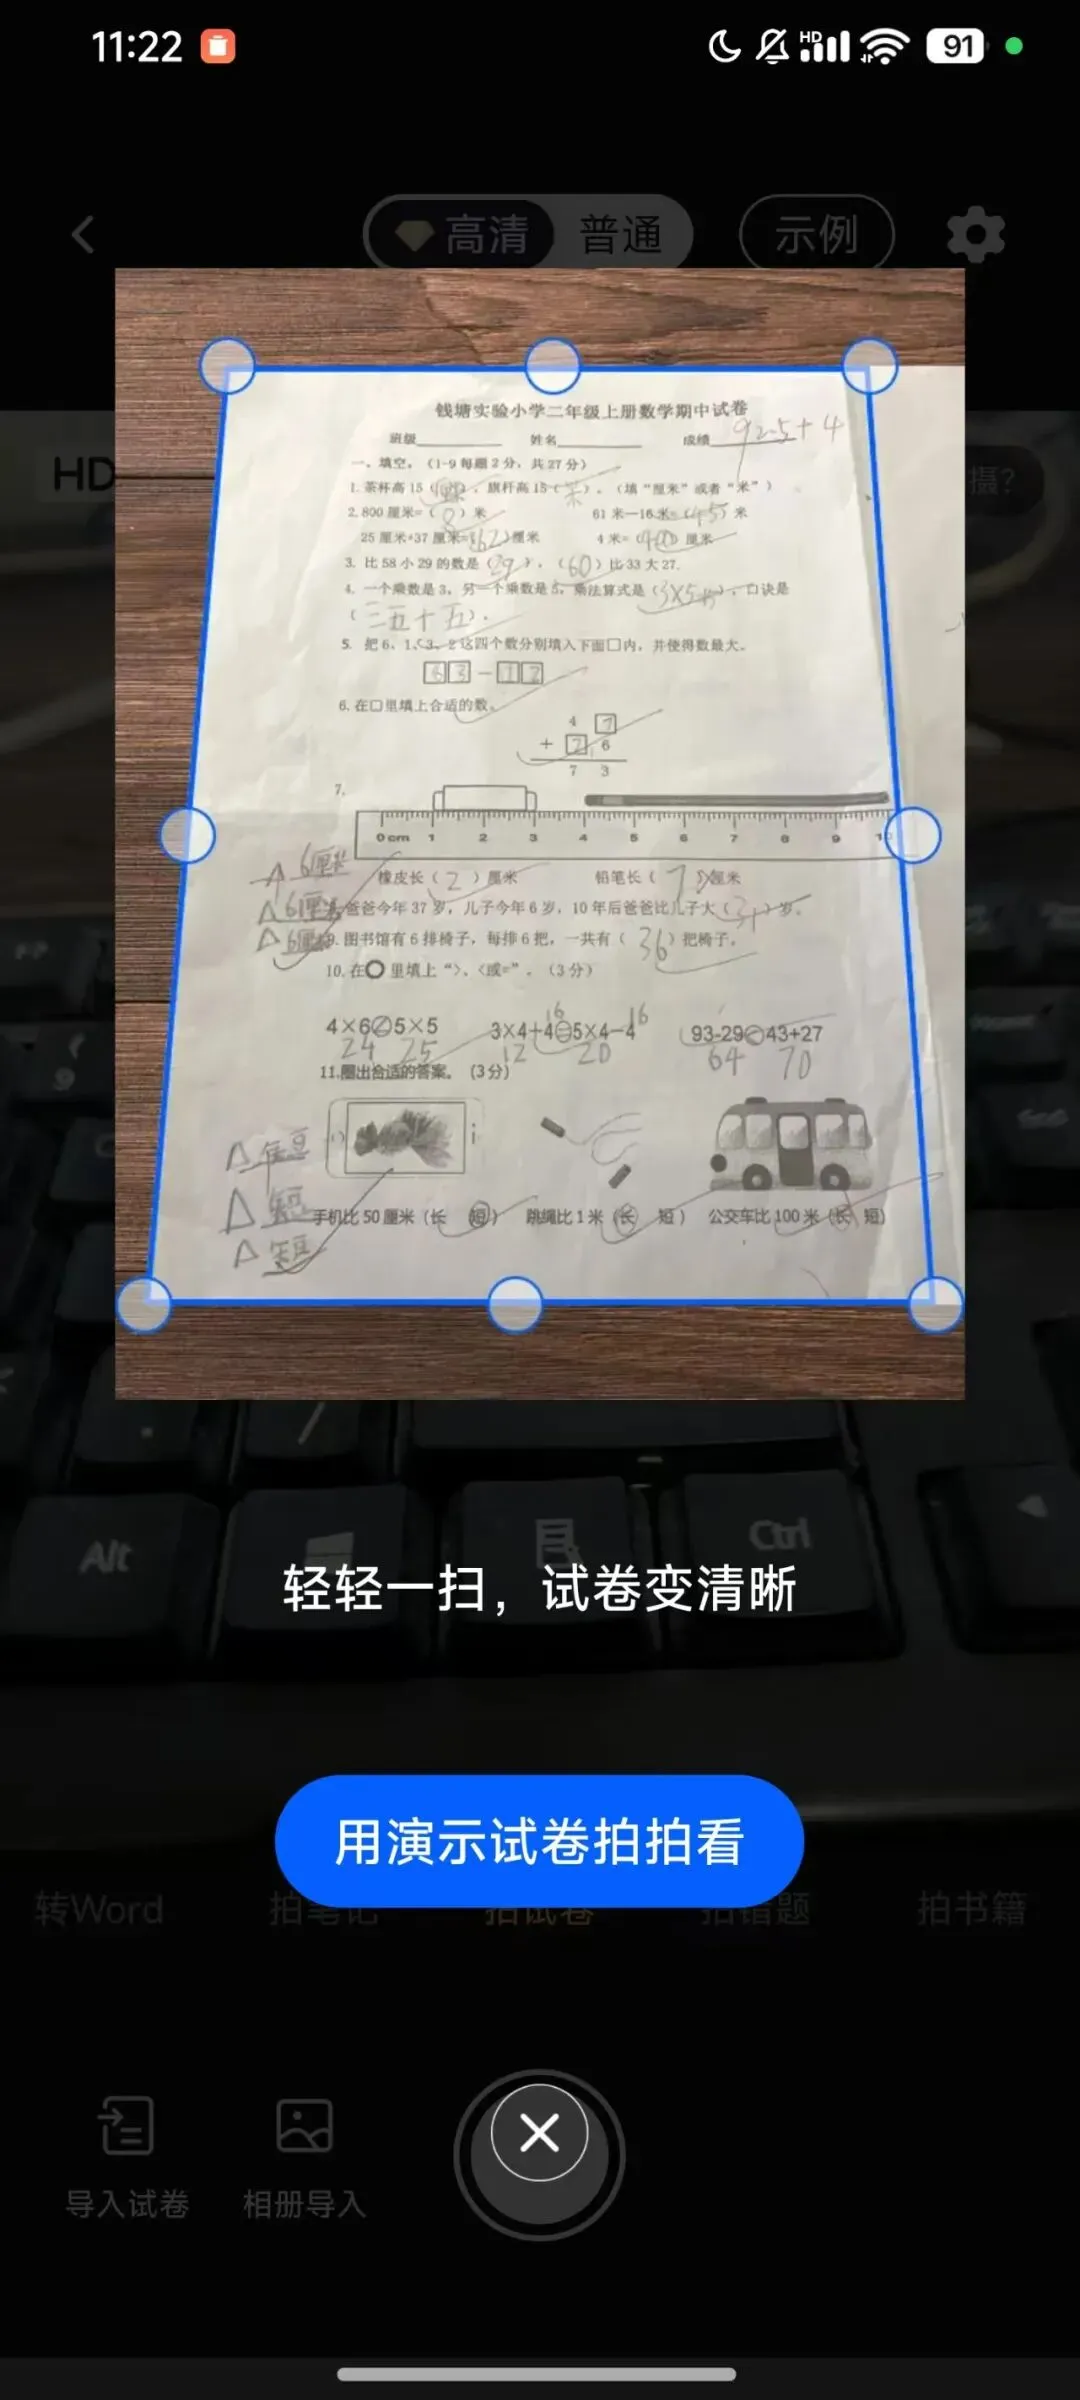 11:22
HD
91
高清 普通 示例
HD
摄?
钱塘实验小学二年级上册数学期中试卷
班级 姓名 成绩 92.5+4
一、填空。(1-9每题2分，共27分)
1. 茶杯高15(厘米)，旗杆高15(米)。(填“厘米”或者“米”)
2. 800厘米=(8)米 61米—16米=(45)米
25厘米+37厘米=(62)厘米 4米=(400)厘米
3. 比58小29的数是(29)，(60)比33大27.
4. 一个乘数是3，另一个乘数是5，乘法算式是(3×5)，口诀是
(三五十五)．
5. 把6、1、3、2这四个数分别填入下面□内，并使得数最大。
63－12
6. 在□里填上合适的数。
4 7
+ 2 6
7 3
7.
0cm 1 2 3 4 5 6 7 8 9 10
6厘米
橡皮长(2)厘米 铅笔长( )厘米
6厘米
爸爸今年37岁，儿子今年6岁，10年后爸爸比儿子大(31)岁．
6厘米
9. 图书馆有6排椅子，每排6把，一共有(36)把椅子。
10. 在○里填上“>、<或=”．(3分)
16 16
4×6<5×5 3×4+4=5×4−4 93-29<43+27
24 25 12 20 64 70
11.圈出合适的答案。(3分)
短
短
手机比50厘米(长 短) 跳绳比1米(长 短) 公交车比100米(长 短)
短
Alt
Ctrl
轻轻一扫，试卷变清晰
用演示试卷拍拍看
转Word 拍笔记 拍试卷 拍错题 拍书籍
导入试卷 相册导入